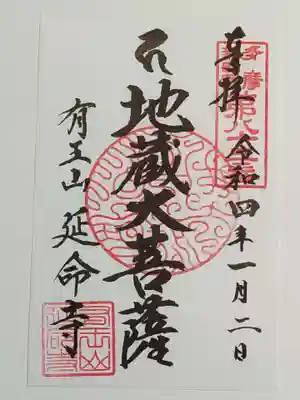 奉拝 令和四年一月二日
地蔵大菩薩
有王山 延命寺